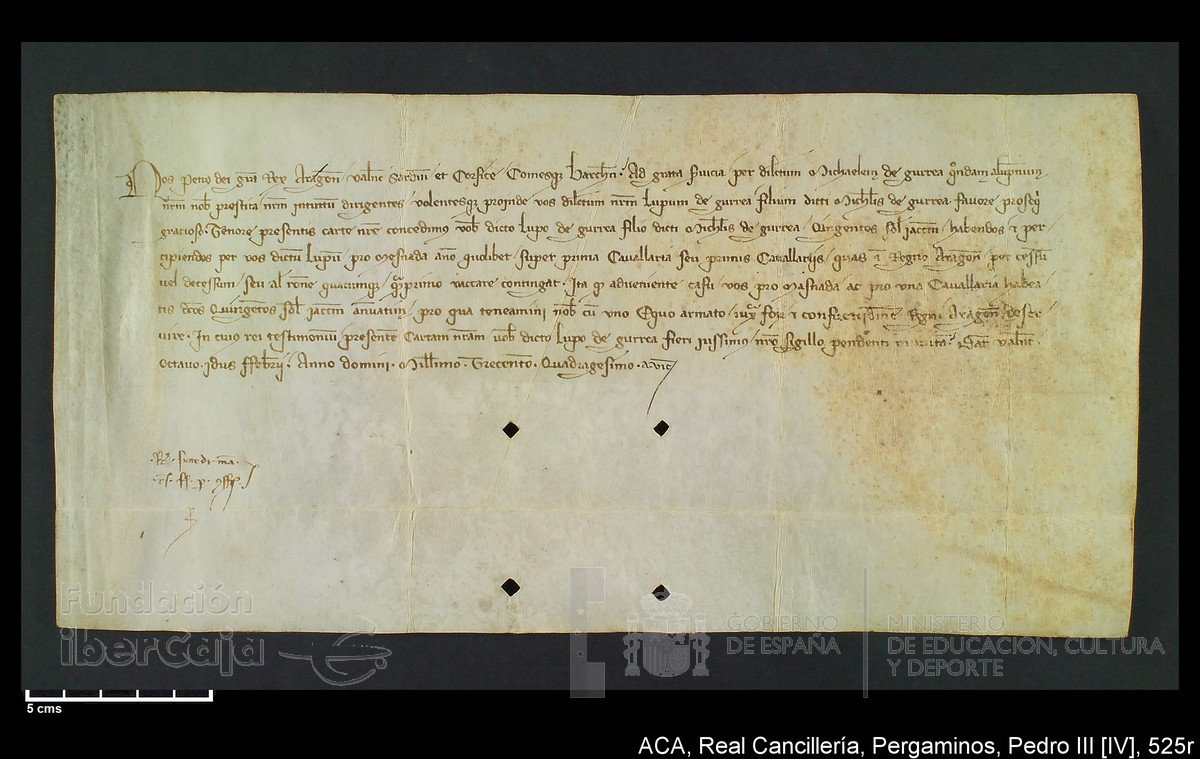 Nos Petrus dei gra Rex Aragon Valenc Sardin et Corsice Comesq Barchn. Ad grata servicia per dilectum Michaelem de gurrea quondam alguazirium
nrm nob prestita nrm intuitum dirigentes volentesq proinde vos dilectum nrm Lupum de gurrea filium dicti Michlis de gurrea favore prosequi
gracioso. Tenore presentis carte nre concedimus vob dicto Lupo de gurrea filio dicti Michlis de gurrea Quingentos sol jaccen habendos et per
cipiendos per vos dictum Lupum pro Mesnada anno quolibet super prima Cavallaria seu primis Cavallariis quas in Regno Aragon per cessum
vel decessum seu al racione quacumq primo vaccare contingat. Ita q adveniente casu vos pro Masnada ac pro una Cavallaria habea
tis dictos Quingentos sol jaccen annuatim pro qua teneamini nob cum uno Equo armato iuxta for et Regni Aragon deser
vire. In cuius rei testimonium presentem Cartam nram vob dicto Lupo de gurrea fieri iussimus nro sigillo pendenti munita. Dat Valenc
octavo idus ffebrii. Anno domini Millimo Trecentesimo Quadragesimo
5 cms
Fundación
iberCaja
GOBIERNO
DE ESPAÑA
MINISTERIO
DE EDUCACIÓN, CULTURA
Y DEPORTE
ACA, Real Cancillería, Pergaminos, Pedro III [IV], 525r